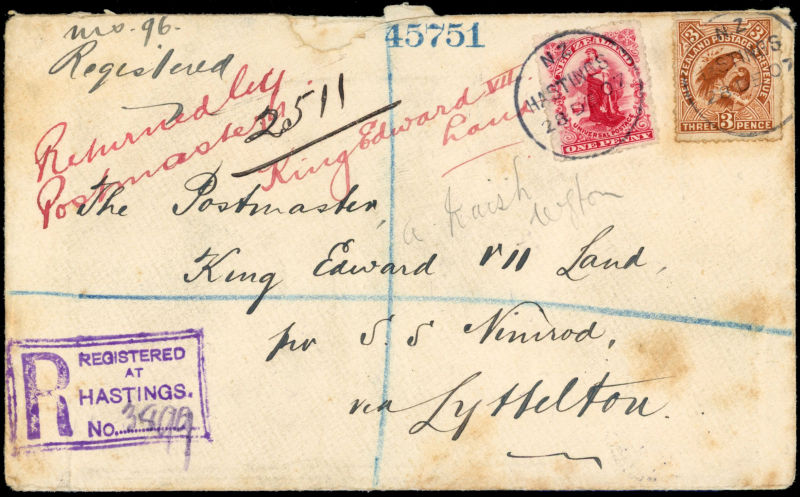 no. 96.
Registered
45751
Returned by
Postmaster
King Edward VII
Land
2511
NEW ZEALAND
UNIVERSAL POSTAGE
ONE PENNY
N.Z
HASTINGS
28 07
3 3
NEW ZEALAND POSTAGE & REVENUE
THREE 3 PENCE
N.Z
The Postmaster,
King Edward VII Land,
per S.S Nimrod,
via Lyttelton.
R
REGISTERED
AT
HASTINGS.
No.